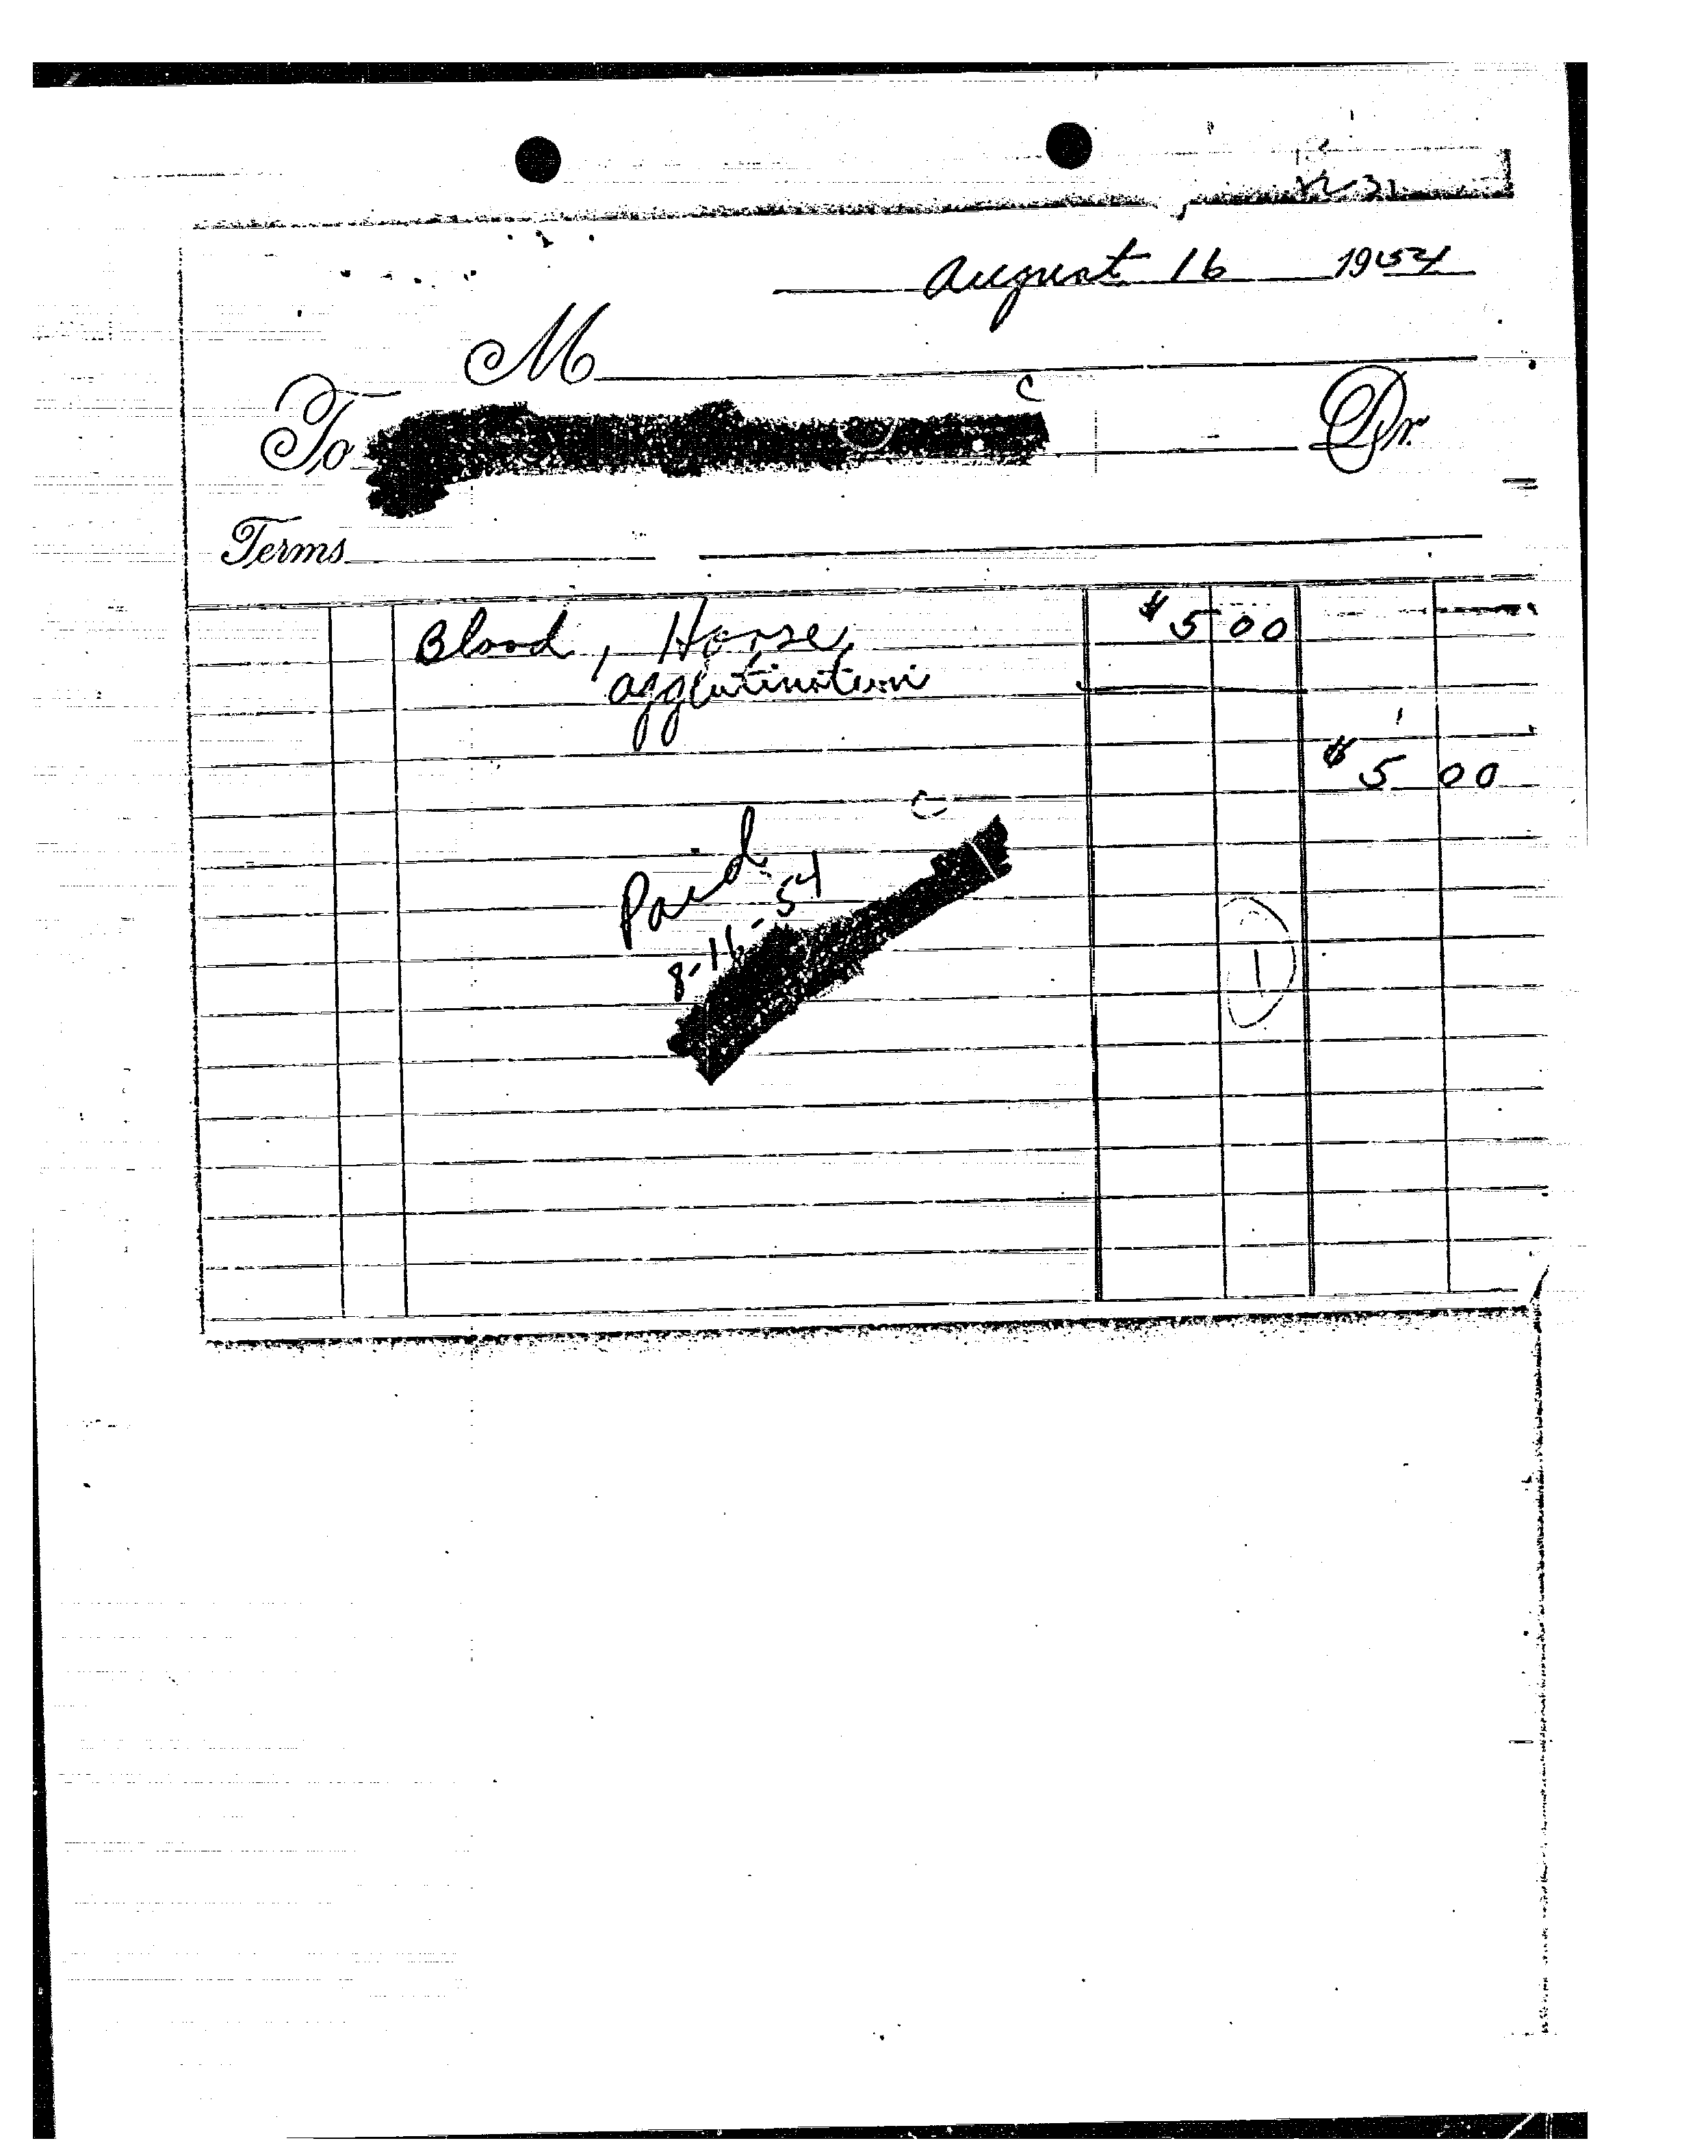 August 16 1954
M
To Dr.
Terms
Blood, Horse, $5 00
agglutination
$5 00
Paid
8-16-54
1